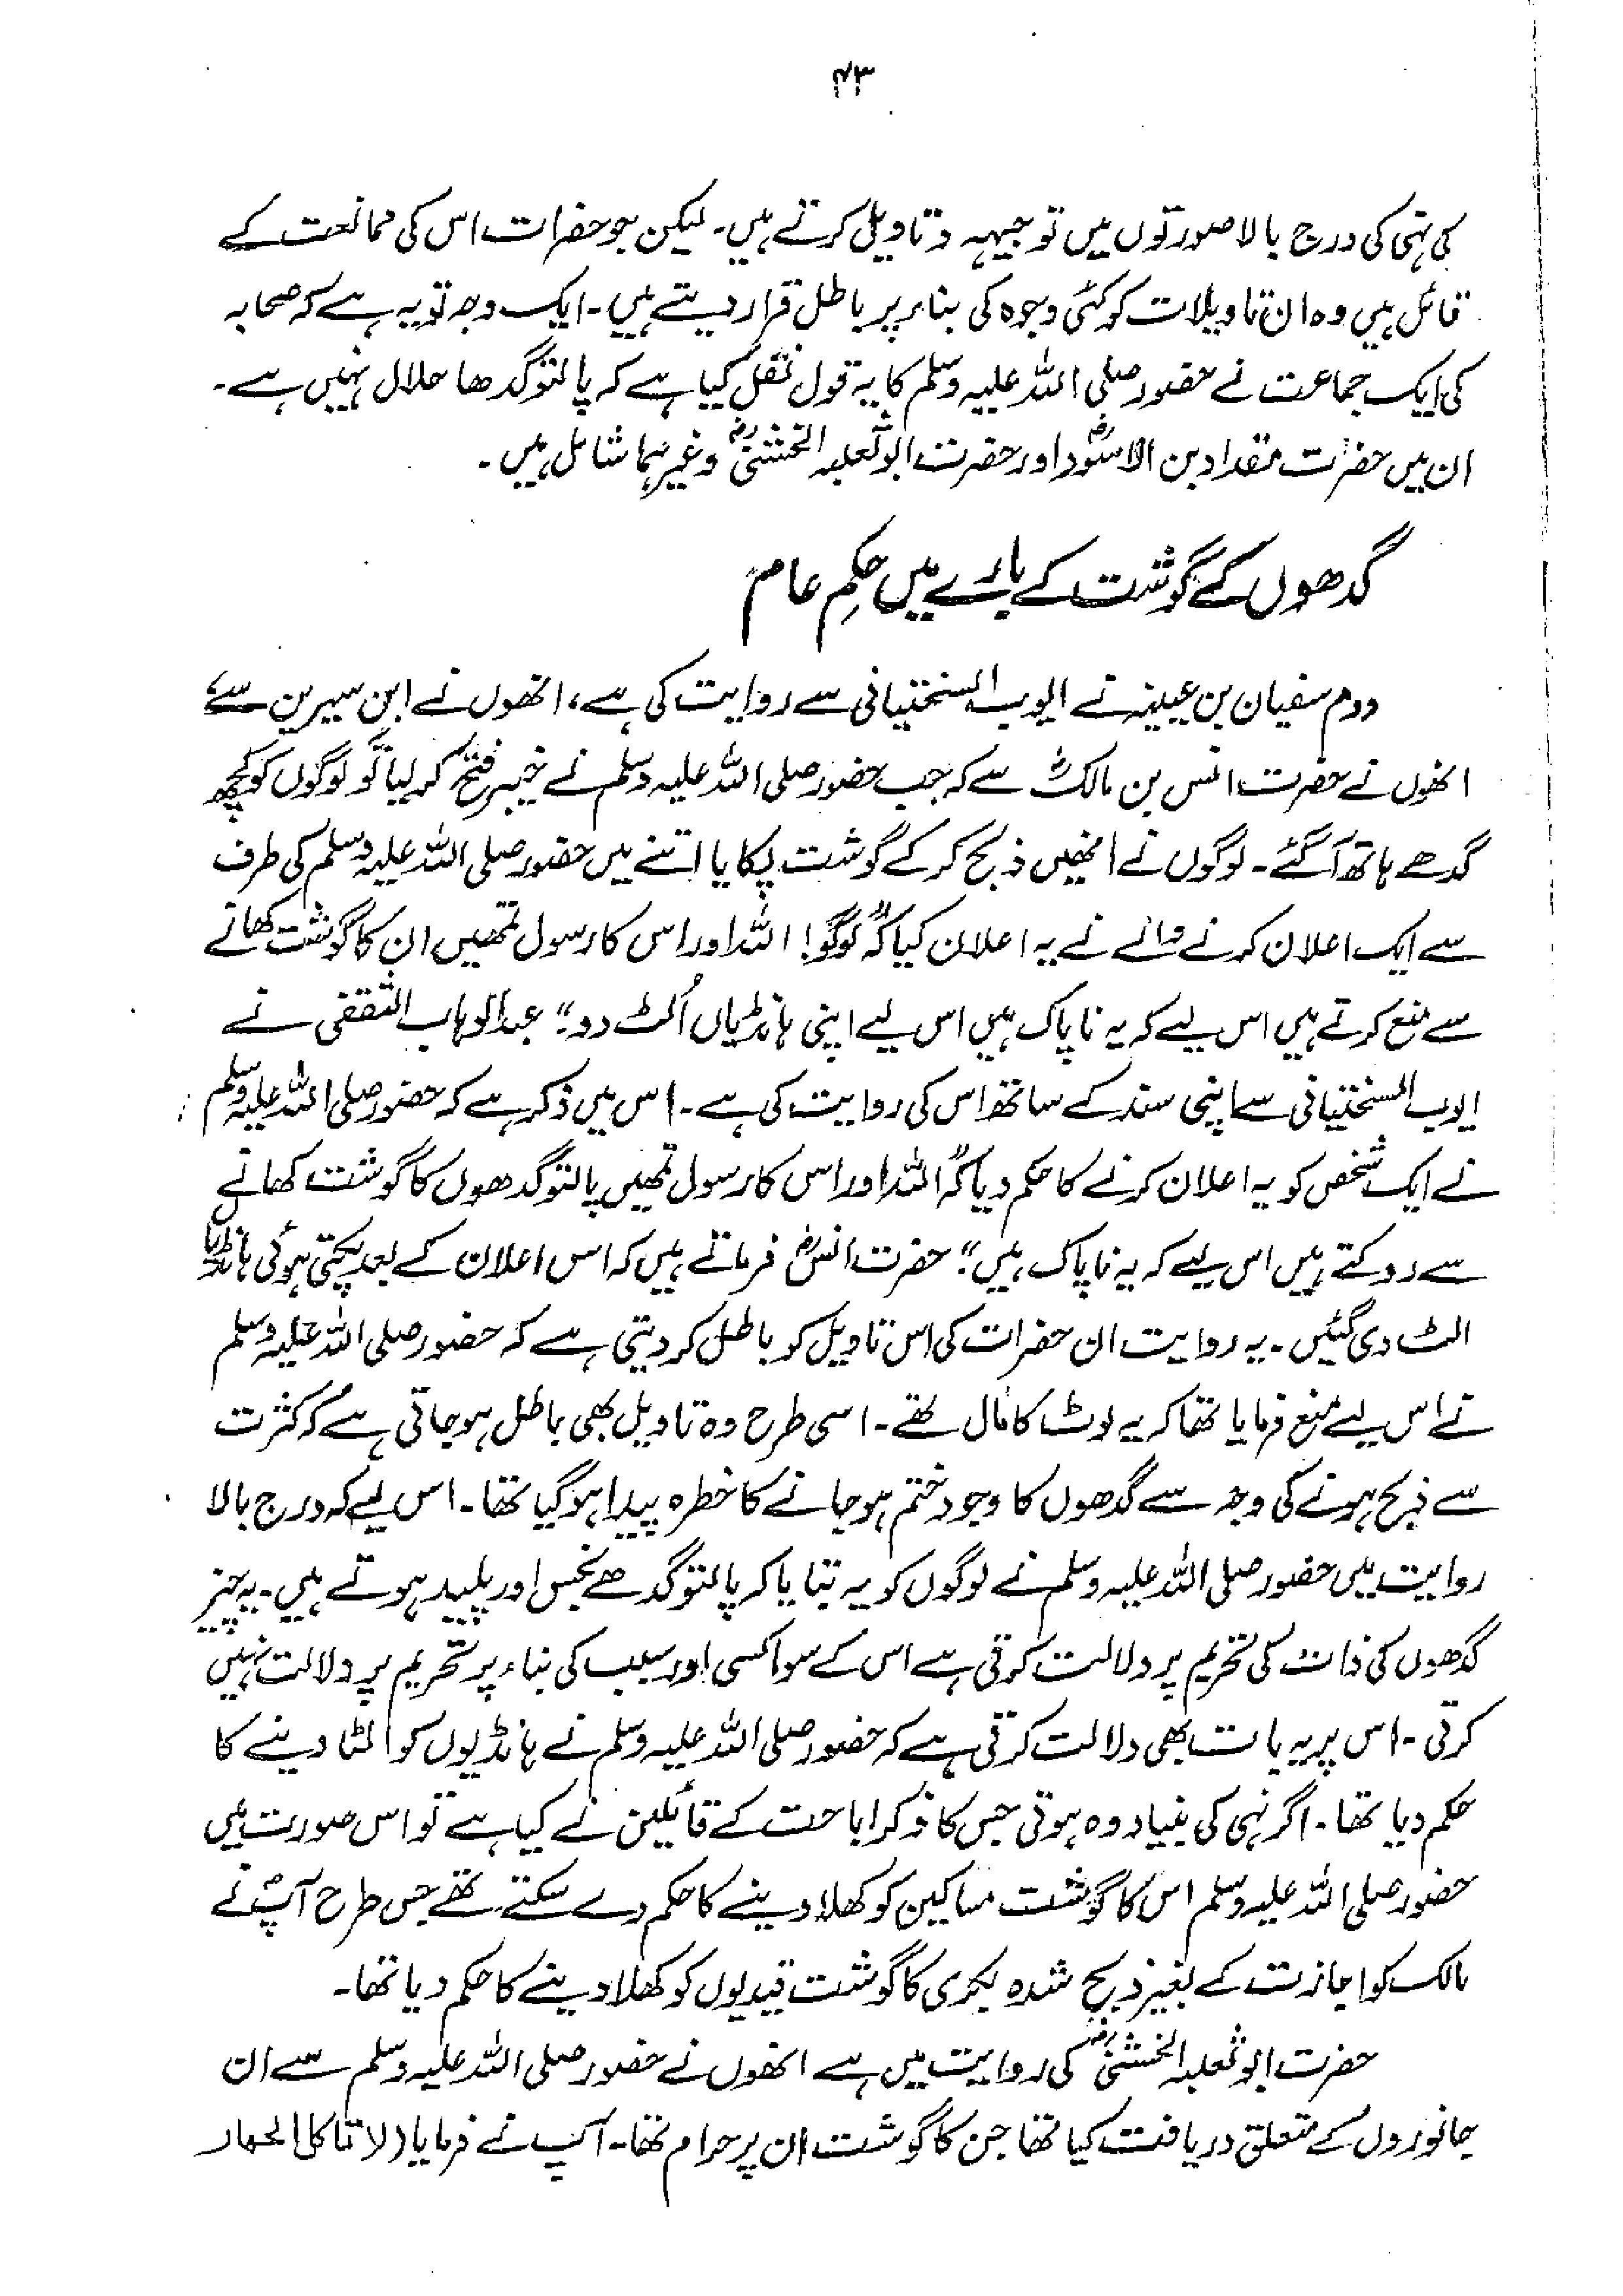 ۴۳
کی نہی کی درج بالا صورتوں میں توجیہہ و تاویل کرتے ہیں۔ لیکن جو حضرات اس کی ممانعت کے
قائل ہیں وہ ان تاویلات کو کئی وجوہ کی بناء پر باطل قرار دیتے ہیں۔ ایک وجہ تو یہ ہے کہ صحابہ
کی ایک جماعت نے حضور صلی اللہ علیہ وسلم کا یہ قول نقل کیا ہے کہ پالتو گدھا حلال نہیں ہے۔
ان میں حضرت مقداد بن الاسودؓ اور حضرت ابو ثعلبہ الخشنیؓ وغیرہما شامل ہیں۔
گدھوں کے گوشت کے بارے میں حکمِ عام
دوم سفیان بن عیینہ نے ایوب السختیانی سے روایت کی ہے، انھوں نے ابن سیرین سے،
انھوں نے حضرت انس بن مالکؓ سے کہ جب حضور صلی اللہ علیہ وسلم نے خیبر فتح کر لیا تو لوگوں کو کچھ
گدھے ہاتھ آگئے۔ لوگوں نے انھیں ذبح کر کے گوشت پکایا اتنے میں حضور صلی اللہ علیہ وسلم کی طرف
سے ایک اعلان کرنے والے نے یہ اعلان کیا کہ "لوگو! اللہ اور اس کا رسول تمھیں ان کا گوشت کھانے
سے منع کرتے ہیں اس لیے کہ یہ ناپاک ہیں اس لیے اپنی ہانڈیاں اُلٹ دو۔" عبدالوہاب الثقفی نے
ایوب السختیانی سے اپنی سند کے ساتھ اس کی روایت کی ہے۔ اس میں ذکر ہے کہ حضور صلی اللہ علیہ وسلم
نے ایک شخص کو یہ اعلان کرنے کا حکم دیا کہ "اللہ اور اس کا رسول تمھیں پالتو گدھوں کا گوشت کھانے
سے روکتے ہیں اس لیے کہ یہ ناپاک ہیں۔" حضرت انسؓ فرماتے ہیں کہ اس اعلان کے بعد پکتی ہوئی ہانڈیاں
الٹ دی گئیں۔ یہ روایت ان حضرات کی اس تاویل کو باطل کر دیتی ہے کہ حضور صلی اللہ علیہ وسلم
نے اس لیے منع فرمایا تھا کہ یہ لوٹ کا مال تھے۔ اسی طرح وہ تاویل بھی باطل ہو جاتی ہے کہ کثرت
سے ذبح ہونے کی وجہ سے گدھوں کا وجود ختم ہو جانے کا خطرہ پیدا ہو گیا تھا۔ اس لیے کہ درج بالا
روایت میں حضور صلی اللہ علیہ وسلم نے لوگوں کو یہ بتایا کہ پالتو گدھے نجس اور پلید ہوتے ہیں۔ یہ چیز
گدھوں کی ذات کی تحریم پر دلالت کرتی ہے اس کے سوا کسی اور سبب کی بناء پر تحریم پر دلالت نہیں
کرتی۔ اس پر یہ بات بھی دلالت کرتی ہے کہ حضور صلی اللہ علیہ وسلم نے ہانڈیوں کو الٹا دینے کا
حکم دیا تھا۔ اگر نہی کی بنیاد وہ ہوتی جس کا ذکر اباحت کے قائلین نے کیا ہے تو اس صورت میں
حضور صلی اللہ علیہ وسلم اس کا گوشت مساکین کو کھلا دینے کا حکم دے سکتے تھے جس طرح آپؐ نے
مالک کو اجازت کے بغیر ذبح شدہ بکری کا گوشت قیدیوں کو کھلا دینے کا حکم دیا تھا۔
حضرت ابو ثعلبہ الخشنیؓ کی روایت میں ہے انھوں نے حضور صلی اللہ علیہ وسلم سے ان
جانوروں کے متعلق دریافت کیا تھا جن کا گوشت ان پر حرام تھا۔ آپ نے فرمایا (لا تاکل الحمار